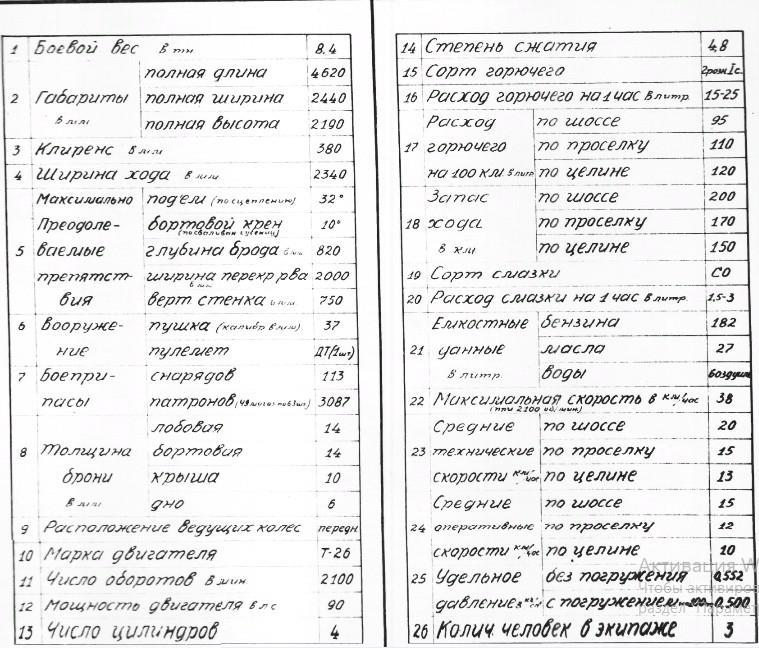 1 Боевой вес в тн 8.4
полная длина 4620
2 Габариты полная ширина 2440
в м/м полная высота 2190
3 Клиренс в м/м 380
4 Ширина хода в м/м 2340
Максимально подъем (по сцеплению) 32°
Преодоле- бортовой крен 10°
5 ваемые глубина брода в м/м 820
препятст- ширина перекр рва 2000
в м/м
вия верт стенка в м/м 750
6 Вооруже- пушка (калибр в м/м) 37
ние пулемет ДТ(1шт)
7 Боепри- снарядов 113
пасы патронов 3087
лобовая 14
8 Толщина бортовая 14
брони крыша 10
в м/м дно 6
9 Расположение ведущих колес передн
10 Марка двигателя Т-26
11 Число оборотов в мин. 2100
12 Мощность двигателя в лс 90
13 Число цилиндров 4
14 Степень сжатия 4,8
15 Сорт горючего Iс.
16 Расход горючего на 1 час в литр. 15-25
Расход по шоссе 95
17 горючего по проселку 110
на 100 км в литр по целине 120
Запас по шоссе 200
18 хода по проселку 170
в км по целине 150
19 Сорт смазки СО
20 Расход смазки на 1 час в литр. 1.5-3
Емкостные бензина 182
21 данные масла 27
в литр. воды воздуш
22 Максимальная скорость в км/час 38
(при 2100 об/мин.)
Средние по шоссе 20
23 технические по проселку 15
скорости км/час по целине 13
Средние по шоссе 15
24 оперативные по проселку 12
скорости км/час по целине 10
25 Удельное без погружения 0,552
давление с погружением 0,500
26 Колич. человек в экипаже 3
Активация W
Чтобы активиров
раздел "Парамет